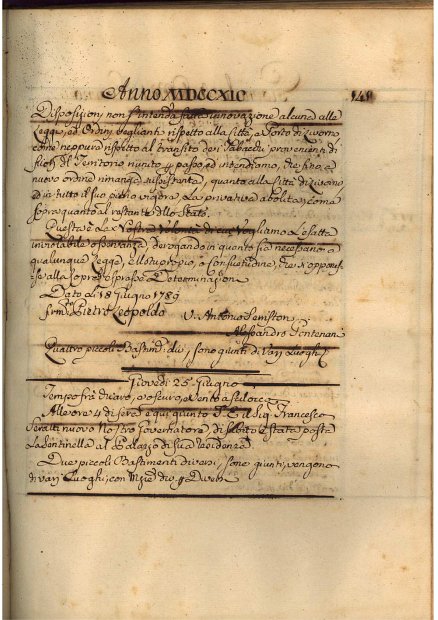 Anno MDCCXIC 148
Disposizioni non s'intenda fatta innovazione alcuna alle
Leggi, ed Ordini veglianti rispetto alla Città, e Porto di Livorno
come neppure rispetto al transito dei Tabacchi provenienti di
fuori del Territorio riunito, passo, ed intendiamo, che fino a
nuovo ordine rimanga quanto alla Città di Livorno
ed in tutto il suo pieno vigore La privativa abolita, come
sopra quanto al restante dello Stato.
Questa è La Nostra Volontà di cui vogliamo L'esatta
inviolabile osservanza, derogando in quanto sia necessario a
qualunque Legge, e Consuetudine, che s'opponesse
alla Sopra espressa Determinazione
Dato li 18 Giugno 1789
firm. Pietro Leopoldo V. Antonio Serristori
Alessandro Pontenani
Quattro piccoli Bastim.ti div.i, sono giunti di Varj Luoghi
Giovedì 25 Giugno
Tempo frà Chiaro, e oscuro, e Vento a Scilocco
Alle ore 4 di sera è qui giunto S. E. il Sig. Francesco
Seratti nuovo Nostro Governatore, di subito è stata posta
La Sentinella al Palazzo di sua residenza
Due piccoli Bastimenti diversi, sono giunti, vengono
di varj Luoghi, con